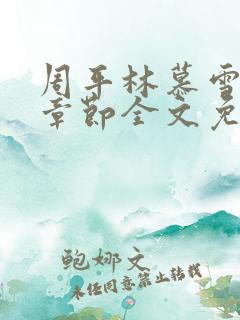 周平林慕雪
章节全文免
鲍娜文
未经同意禁止转载